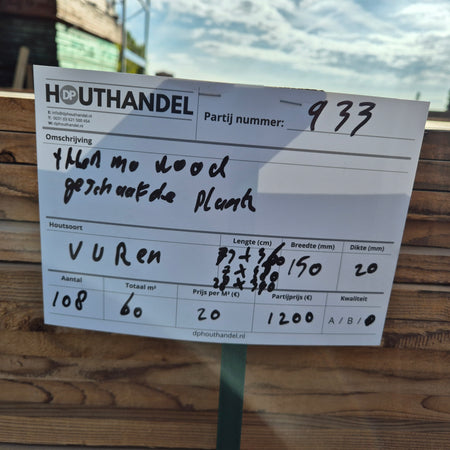 HOUTHANDEL
DP
E: info@dphouthandel.nl
W: dphouthandel.nl
Partij nummer: 933
Omschrijving
geschaafde Plank
Houtsoort
VUREN
Lengte (cm)
Breedte (mm)
150
Dikte (mm)
20
Aantal
108
Totaal m²
60
Prijs per M² (€)
20
Partijprijs (€)
1200
Kwaliteit
A / B /
dphouthandel.nl